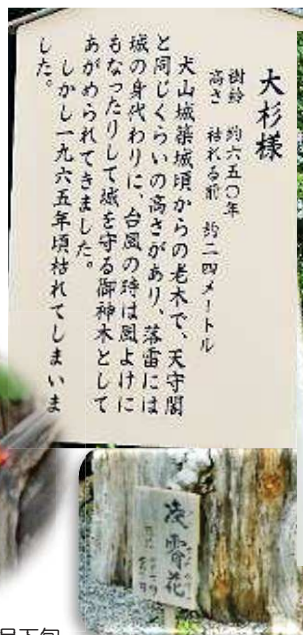 大杉様
樹齢 約六五〇年
高さ 枯れる前 約二四メートル
犬山城築城頃からの老木で、天守閣
と同じくらいの高さがあり、落雷には
城の身代わりに、台風の時は風よけに
もなったりして城を守る御神木として
あがめられてきました。
しかし一九六五年頃枯れてしまいま
した。
凌霄花
月下旬